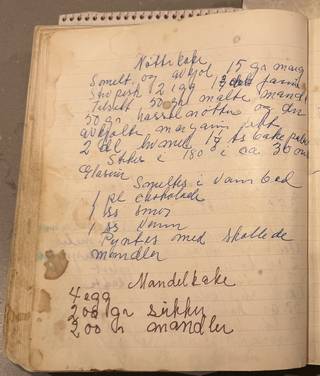 Nøttekake
Smelt og avkjøl 15 gr marg
Stivpisk 2 egg 1 3/4 dl farin
Tilsett 50 gr malte mandl
50 gr hasselnøtter og den
avkjølte margarin
2 dl hvemel 1 ts bakepul
Stekes i 180° i ca 30 m
Glasur
Smeltes i vannbad
1 pl cockolade
1 ss smør
1 ss vann
Pyntes med skollede
mandler
Mandelkake
4 egg
200 gr sukker
200 gr mandler